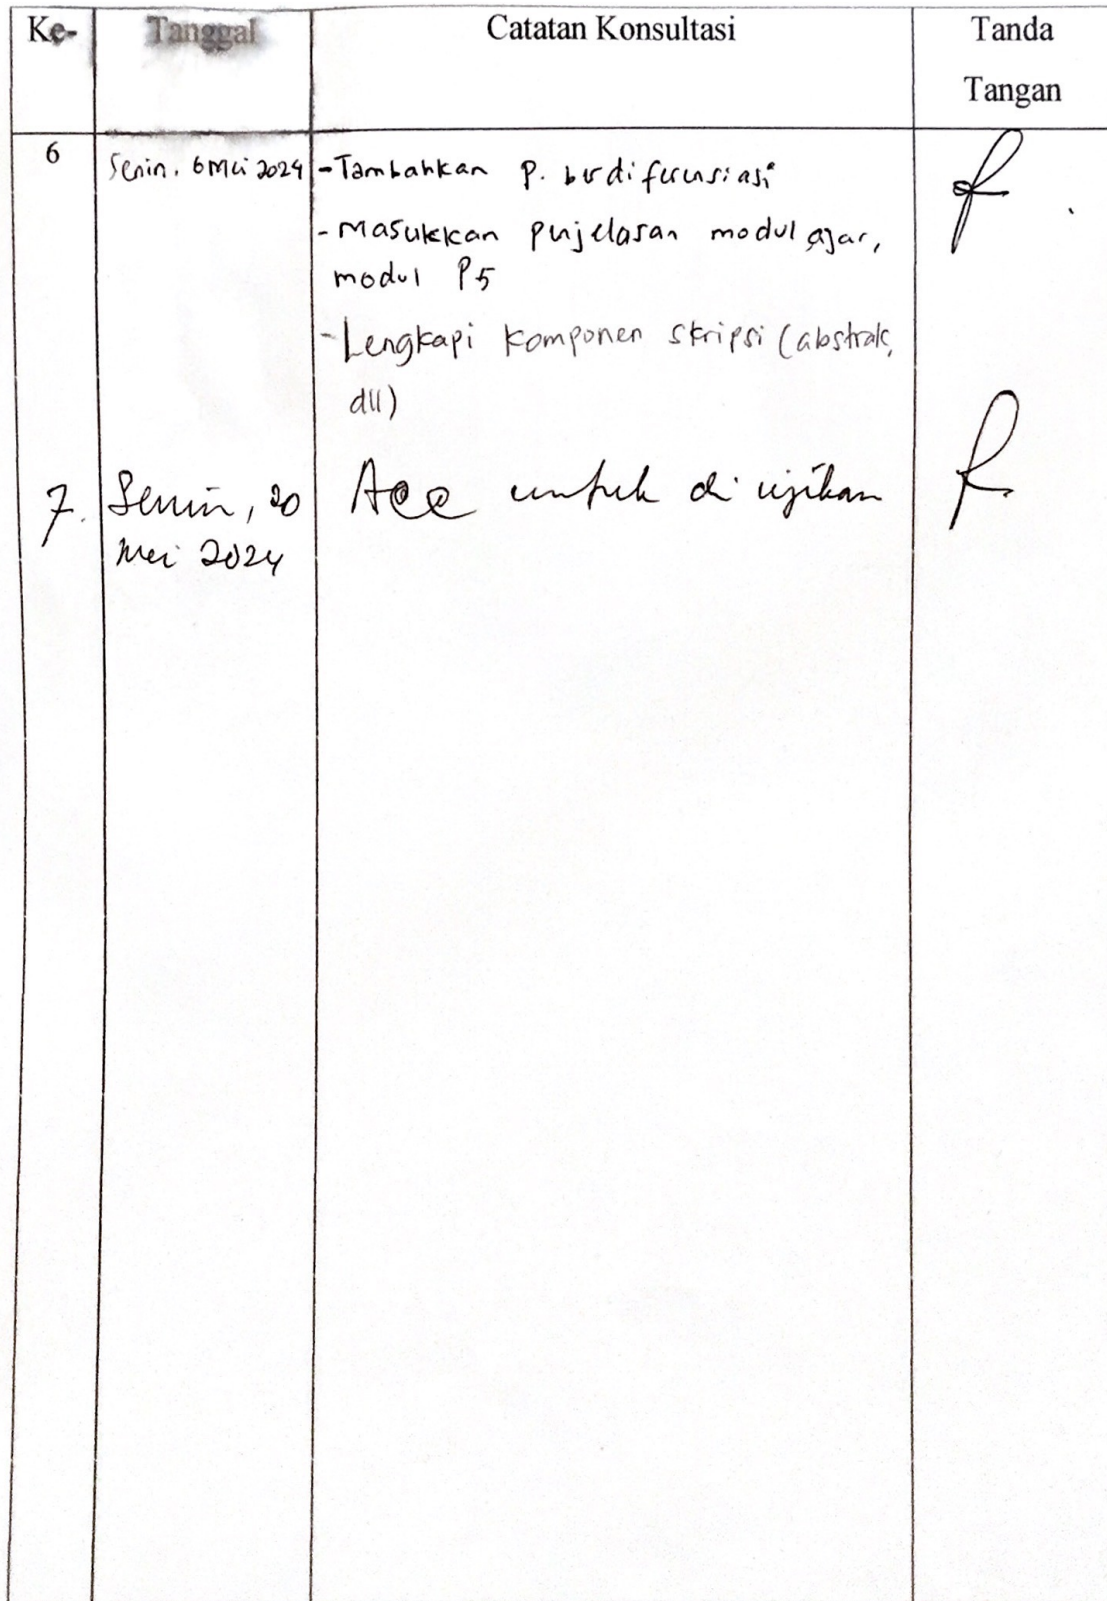 Ke- Tanggal Catatan Konsultasi Tanda
Tangan
6 Senin, 6 Mei 2024 -Tambahkan P. berdiferensiasi
-Masukkan penjelasan modul ajar,
modul P5
-Lengkapi komponen skripsi (abstrak,
dll)
7. Senin, 20 Acc untuk di ujikan
Mei 2024